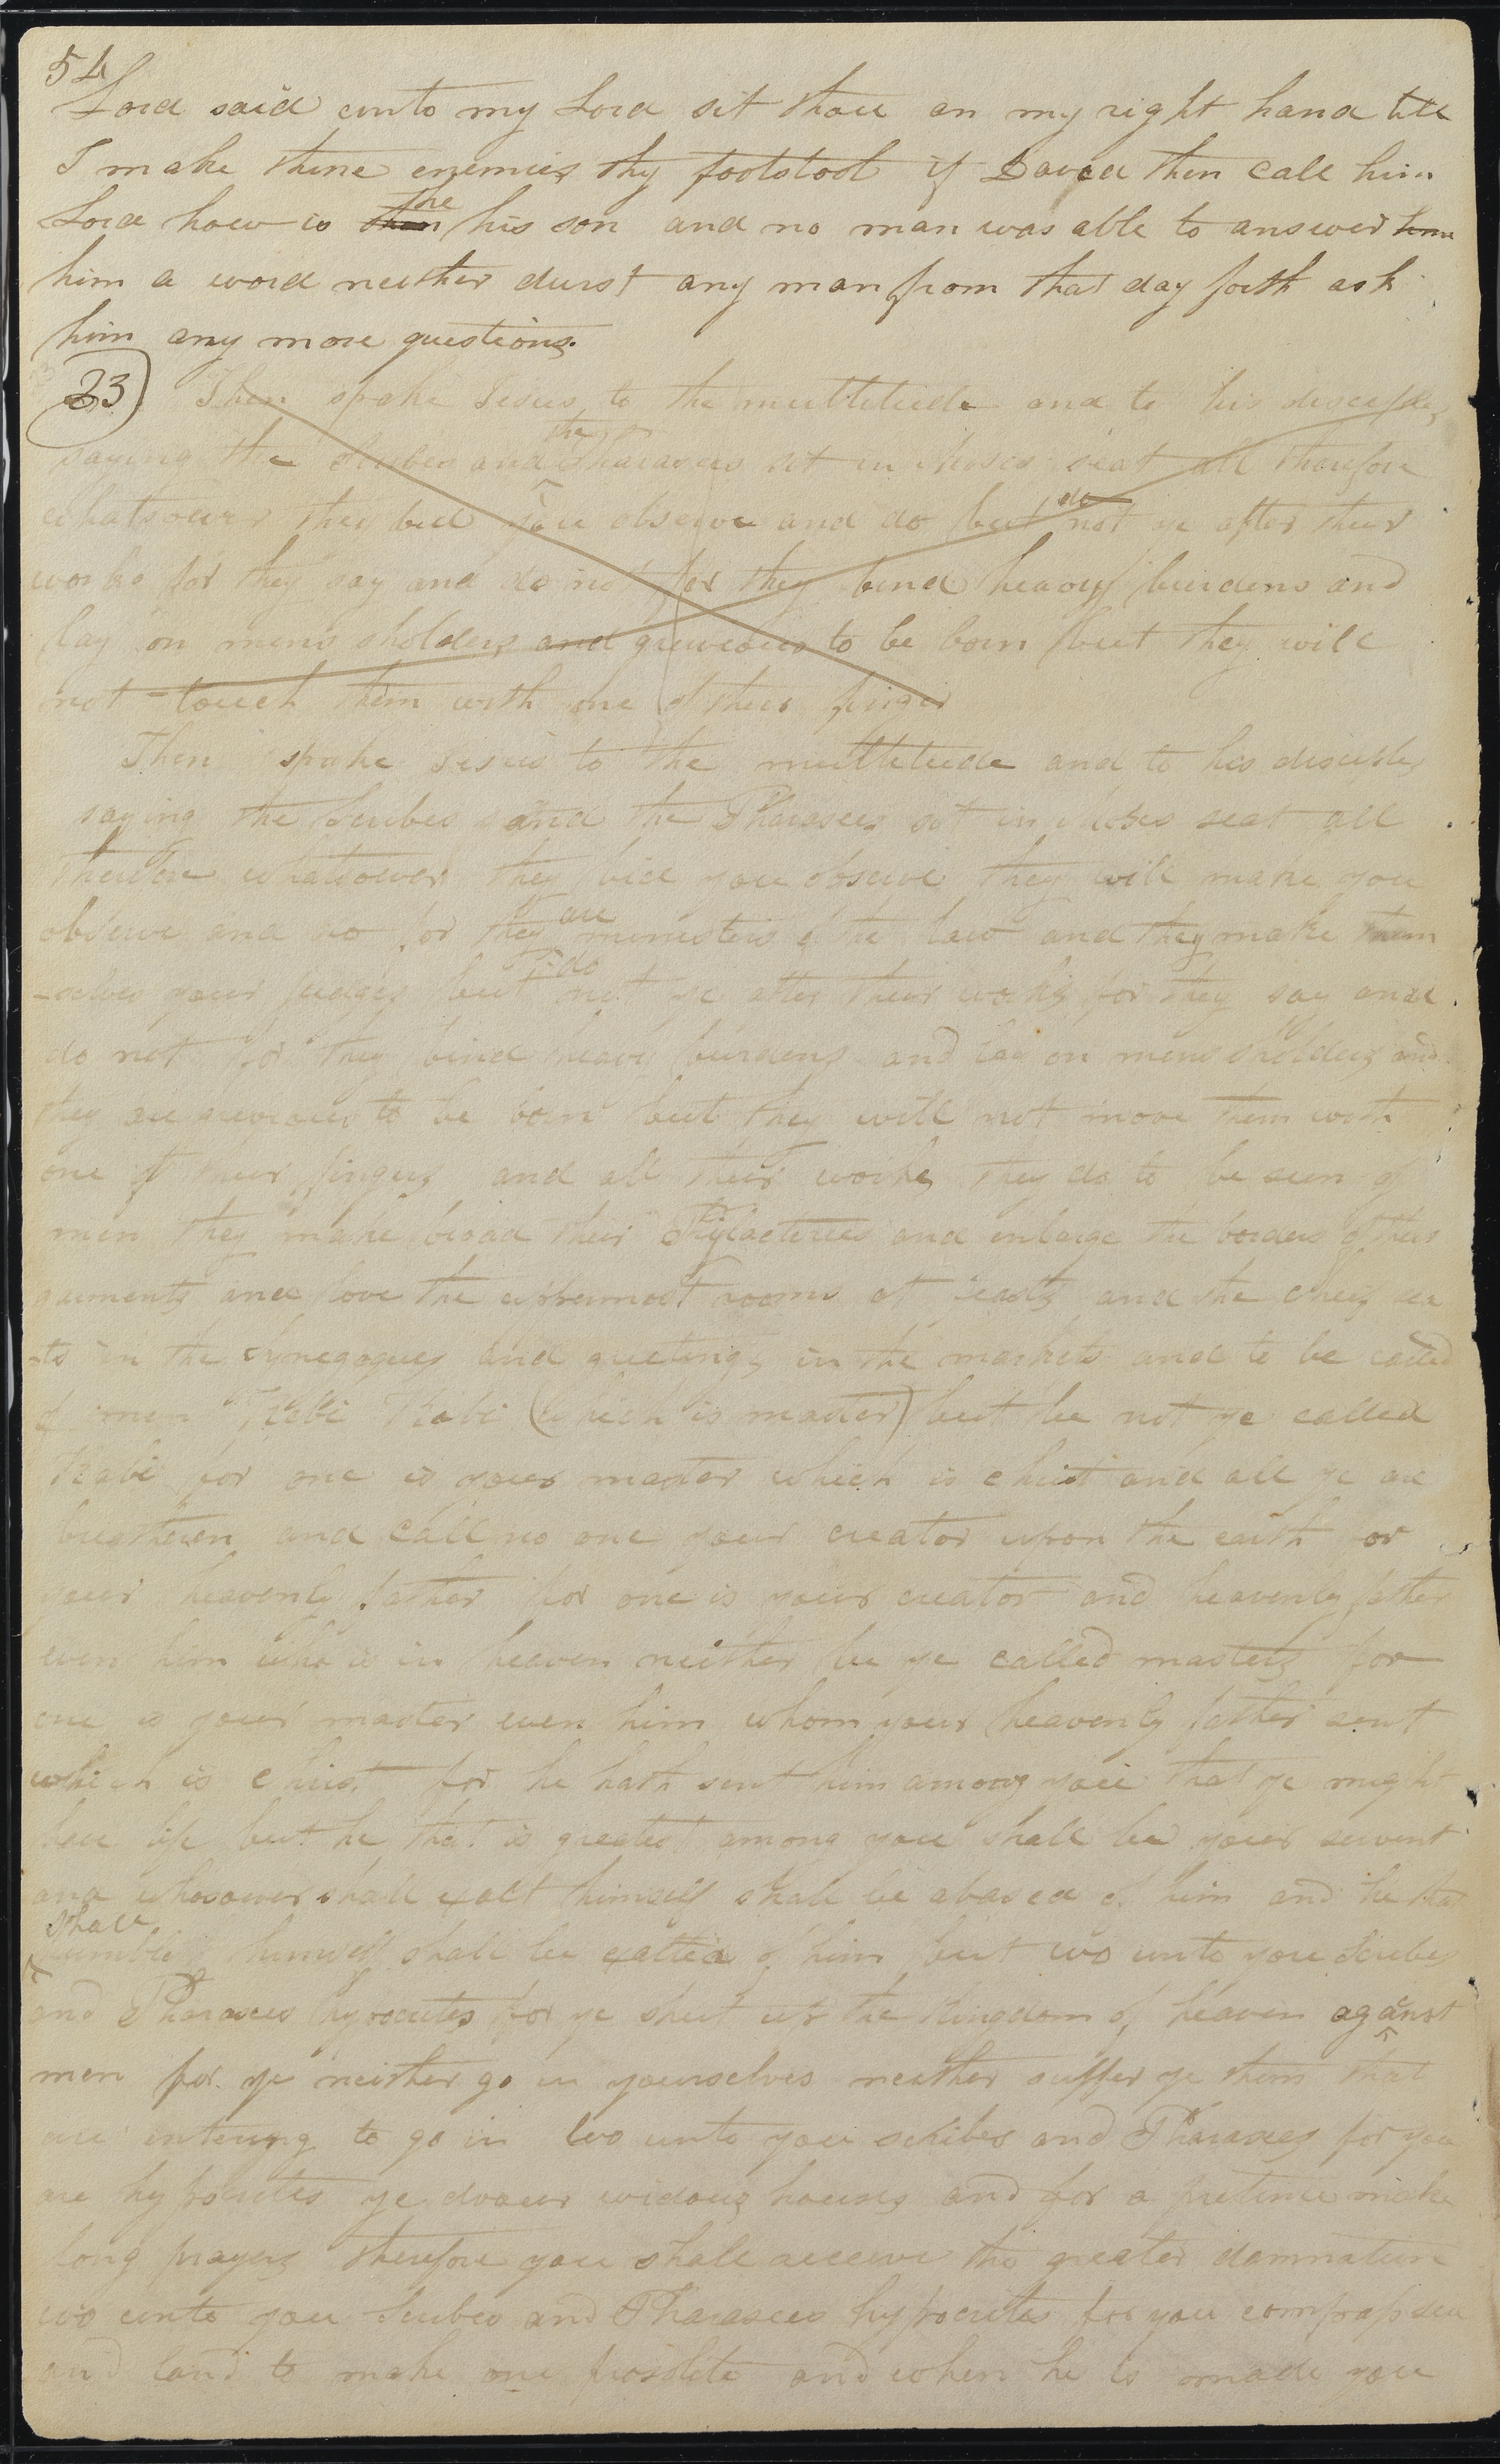 54
Lord said unto my Lord sit thou on my right hand till
I make thine enemies thy footstool if David then call him
Lord how is then he his son and no man was able to answer him
him a word neither durst any man from that day forth ask
him any more questions.
23) Then spoke Jesus to the multitude and to his disciples
saying the Scribes and the Pharasees set in Moses seat all therefore
whatsoever they bid you observe and do but do not ye after their
works for they say and do not for they bind heavy burdens and
lay on mens sholders and grieveous to be born but they will
not touch them with one of their finger
Then spake Jesus to the multitude and to his disciples
saying the Scribes and the Pharasees sit in Moses seat all
therefore whatsoever they bid you observe they will make you
observe and do for they are ministers of the law and they make them
-selves your judges but do not ye after their works for they say and
do not for they bind heavy burdens and lay on mens sholders and
they are grievous to be born but they will not move them with
one of their fingers and all their works they do to be seen of
men they make broad their Phylacteries and enlarge the borders of their
garments and love the uppermost rooms at feasts and the cheif sea
-ts in the synegogues and greetings in the markets and to be called
of men Rabi Rabi (which is master) but be not ye called
Rabi for one is your master which is christ and all ye are
breatheren and call no one your creator upon the earth or
your heavenly father for one is your creator and heavenly father
even him who is in heaven neither be ye called masters for
one is your master even him whom your heavenly father sent
which is christ for he hath sent him among you that ye might
have life but he that is greatest among you shall be your servent
and whosoever shall exalt himself shall be abased of him and he that
shall humble himself shall be exalted of him but wo unto you Scribes
and Pharasees hypocrites for ye shut up the kingdom of heaven against
men for ye neither go in yourselves neither suffer ye them that
are entering to go in wo unto you scribes and Pharasees for you
are hypocrites ye dvour widows houses and for a pretence make
long prayers therefore you shall receive the greater damnation
wo unto you Scribes and Pharasees hypocrites for you compass sea
and land to make one proslite and when he is made you